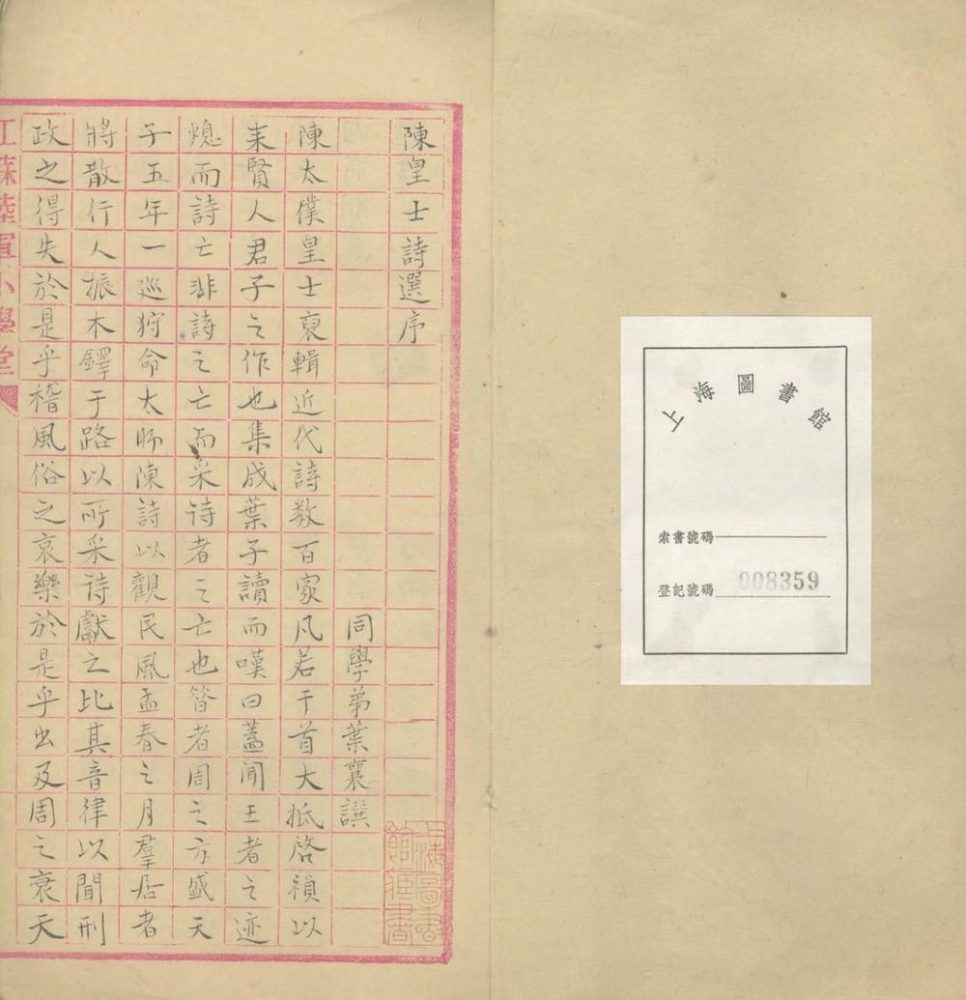 上海圖書館
索書號碼
登記號碼 008359
陳皇士詩選序
同學弟葉襄譔
陳太僕皇士裒輯近代詩數百家凡若干首大抵啓禎以
来賢人君子之作也集成葉子讀而嘆曰蓋聞王者之迹
熄而詩亡非詩之亡而采诗者之亡也昔者周之方盛天
子五年一巡狩命太師陳詩以觀民風孟春之月羣居者
將散行人振木鐸于路以所采诗獻之比其音律以聞刑
政之得失於是乎稽風俗之哀樂於是乎出及周之衰天
江蘇陸軍小學堂
上海圖書館藏書